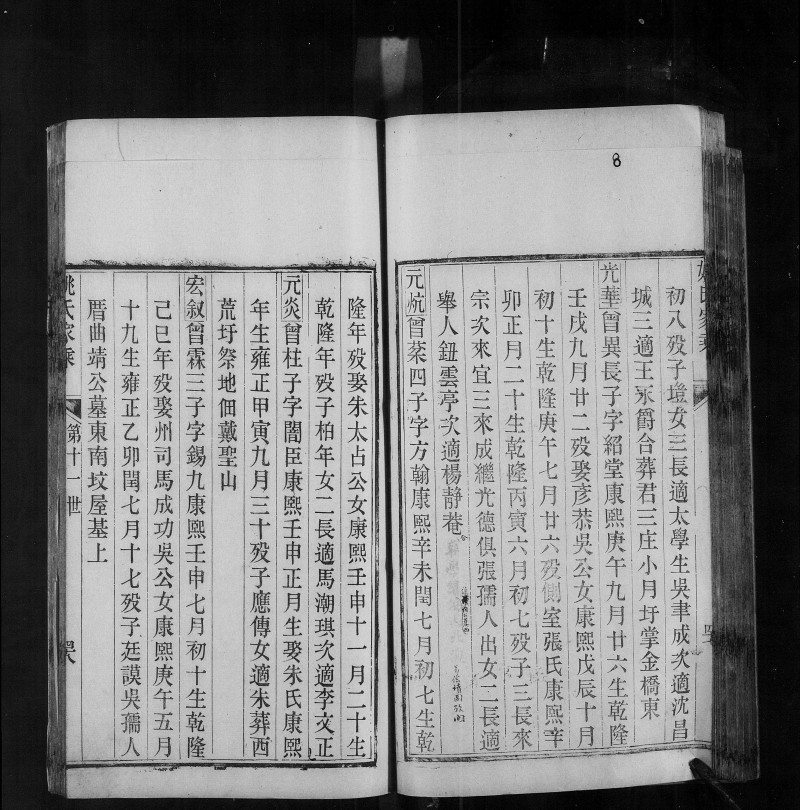 8
初八殁子壇女三長適太學生吳聿成次適沈昌
城三適王永爵合葬君三庄小月圩掌金橋東
光華曾異長子字紹堂康熙庚午九月廿六生乾隆
壬戌九月廿二殁娶彦恭吳公女康熙戊辰十月
初十生乾隆庚午七月廿六殁側室張氏康熙辛
卯正月二十生乾隆丙寅六月初七殁子三長來
宗次來宜三來成繼尤德俱張孺人出女二長適
舉人鈕雲亭次適楊静菴
元炕曾棻四子字方翰康熙辛未閏七月初七生乾
隆年殁娶朱太占公女康熙壬申十一月二十生
乾隆年殁子柏年女二長適馬潮琪次適李文正
元炎曾柱子字闇臣康熙壬申正月生娶朱氏康熙
年生雍正甲寅九月三十殁子應傳女適朱葬西
荒圩祭地佃戴聖山
宏叙曾霖三子字錫九康熙壬申七月初十生乾隆
己巳年殁娶州司馬成功吳公女康熙庚午五月
十九生雍正乙卯閏七月十七殁子廷謨吳孺人
厝曲靖公墓東南墳屋基上
姚氏家乘
第十一世